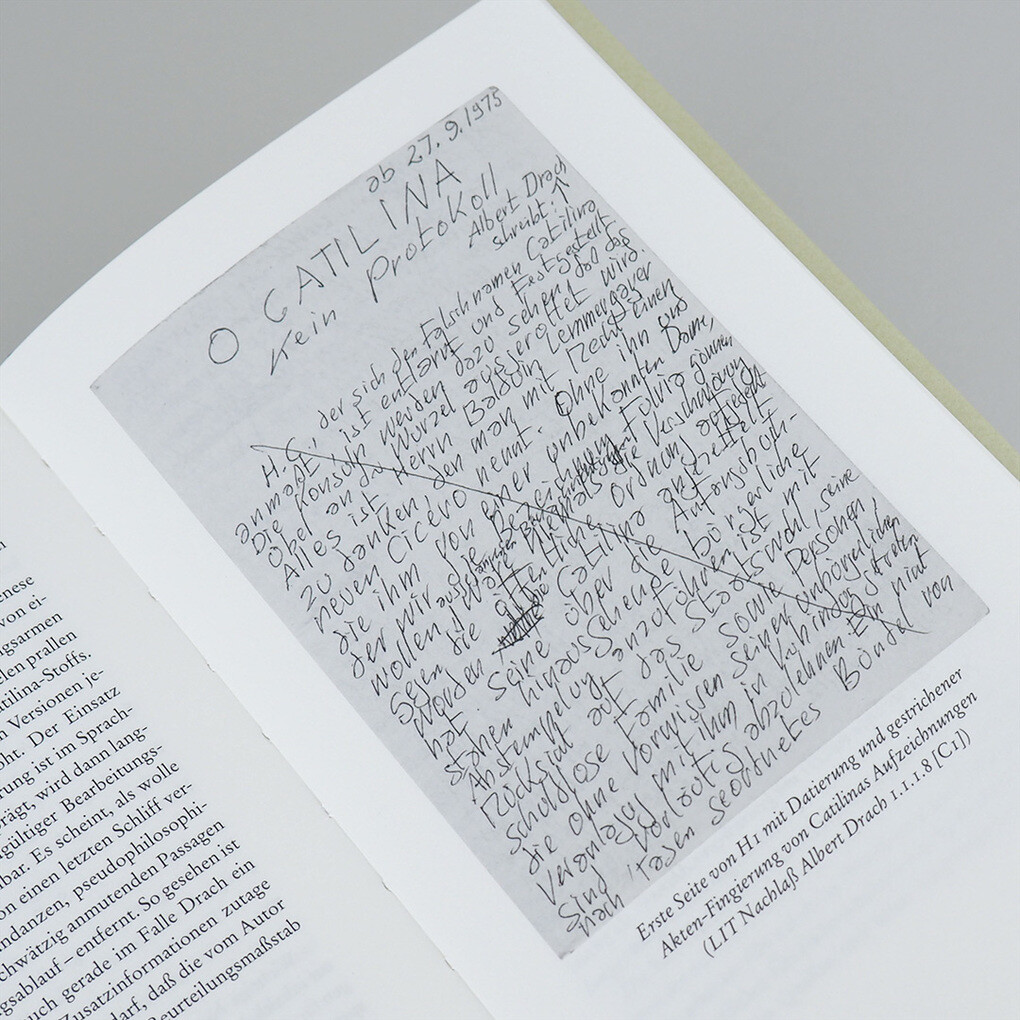 enese
von ei-
ngsarmen
elen prallen
atilina-Stoffs.
n Versionen je-
oht. Der Einsatz
rung ist im Sprach-
prägt, wird dann lang-
gültiger Bearbeitungs-
bar. Es scheint, als wolle
on einen letzten Schliff ver-
ndanzen, pseudophilosophi-
chwätzig anmutenden Passagen
gsablauf – entfernt. So gesehen ist
uch gerade im Falle Drach ein
Zusatzinformationen zutage
darf, daß die vom Autor
eurteilungsmaßstab
ab 27.9.1975
O CATILINA
Kein Protokoll
Albert Drach
schreibt:
H.C., der sich den Falschnamen Catilina
anmaßt, ist entlarvt und festgestellt
Die Konsuln werden dazu sehen, daß das
Übel an der Wurzel ausgerottet wird.
Alles ist Herrn Balduin Lemmergauer
zu danken, den man mit Recht einen
neuen Cicero nennt. Ohne ihn und
die ihm von einer unbekannten Dame,
der wir die Bezeichnung Fulvia gönnen
wollen,
gegen die Ordnung
worden
hat seine Catilina
stehen über die Anfangsbuch-
hinausgehende bürgerliche
Abstempelung anzuführen, ist mit
Rücksicht auf das Staatswohl, seine
schuldlose Familie sowie Personen,
die ohne Vorwissen seiner ungehörigen
Veranlagung mit ihm in Verbindung
sind vorläufig abzulehnen. Ein nicht
nach Tagen geordnetes Bündel von
Erste Seite von H1 mit Datierung und gestrichener
Akten-Fingierung von Catilinas Aufzeichnungen
(LIT Nachlaß Albert Drach 1.1.1.8 [C1])